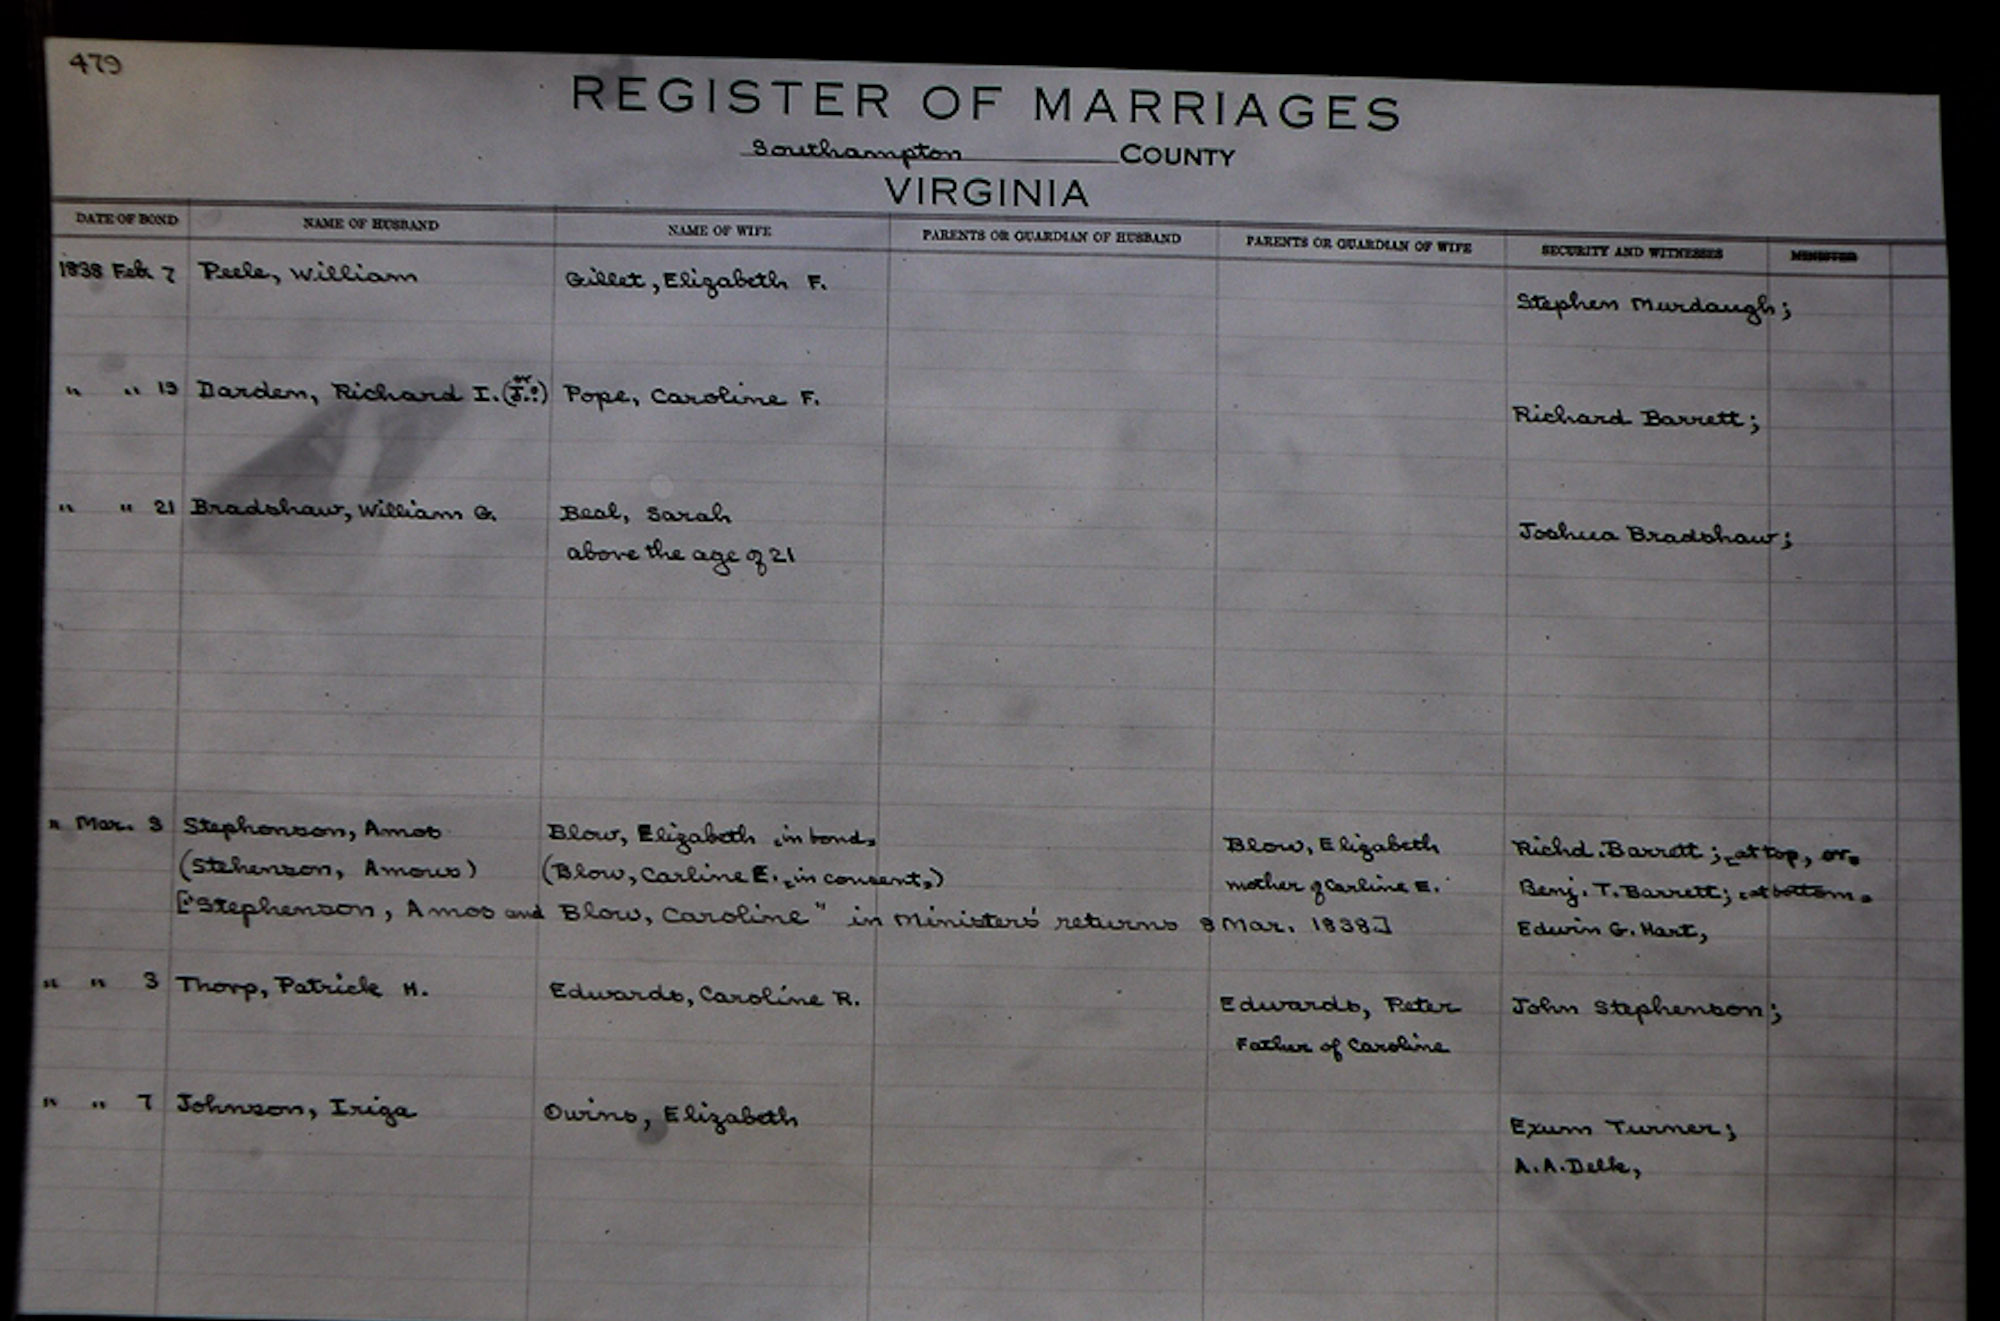 479
REGISTER OF MARRIAGES
Southampton COUNTY
VIRGINIA
DATE OF BOND NAME OF HUSBAND NAME OF WIFE PARENTS OR GUARDIAN OF HUSBAND PARENTS OR GUARDIAN OF WIFE SECURITY AND WITNESSES MINISTER
1838 Feb. 7 Peele, William Gillet, Elizabeth F.
Stephen Murdaugh;
" " 19 Darden, Richard I. (or J.?) Pope, Caroline F.
Richard Barrett;
" " 21 Bradshaw, William G. Beal, Sarah
Joshua Bradshaw;
above the age of 21
" Mar. 3 Stephenson, Amos Blow, Elizabeth in bond Blow, Elizabeth Richd. Barrett; at top, or
(Stehenson, Amous) (Blow, Carline E. in consent) mother of Carline E. Benj. T. Barrett; at bottom
["Stephenson, Amos and Blow, Caroline" in Ministers' returns 8 Mar. 1838.] Edwin G. Hart,
" " 3 Thorp, Patrick H. Edwards, Caroline R. Edwards, Peter John Stephenson;
Father of Caroline
" " 7 Johnson, Iriga Owins, Elizabeth
Exum Turner;
A.A. Delk,